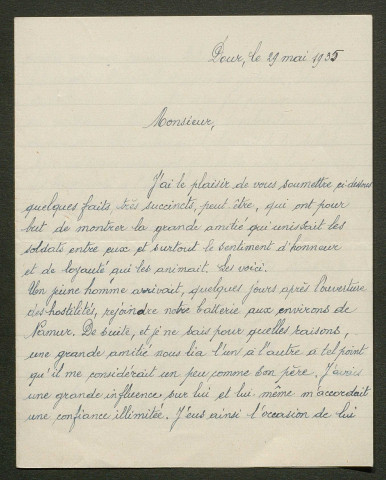 Dour, le 29 mai 1935
Monsieur,
J'ai le plaisir de vous soumettre ci-dessous
quelques faits, très succincts, peut être, qui ont pour
but de montrer la grande amitié qui unissait les
soldats entre eux et surtout le sentiment d'honneur
et de loyauté qui les animait. Les voici.
Un jeune homme arrivait, quelques jours après l'ouverture
des hostilités, rejoindre notre batterie aux environs de
Namur. De suite, et je ne sais pour quelles raisons,
une grande amitié nous lia l'un à l'autre à tel point
qu'il me considérait un peu comme bon père. J'avais
une grande influence sur lui et lui même m'accordait
une confiance illimitée. J'eus ainsi l'occasion de lui